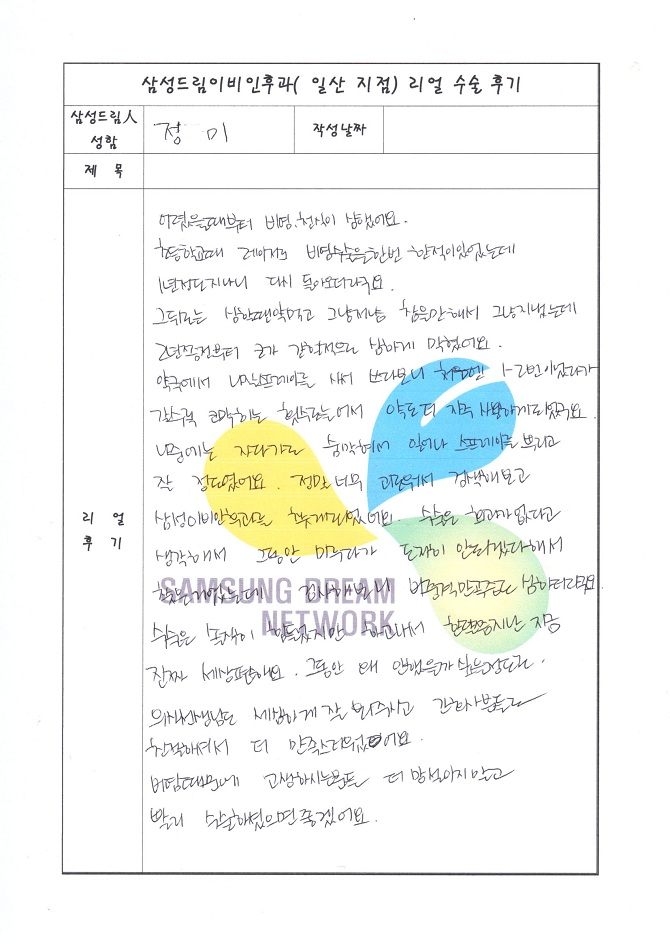 삼성드림이비인후과( 일산 지점) 리얼 수술 후기
삼성드림人 성함
정 미
작성날짜
제 목
리 얼 후 기
어렸을때부터 비염, 천식이 심했어요.
초등학교때 레이저로 비염수술을한번 한적이있었는데
1년정도지나니 다시 돌아오더라구요.
그뒤로는 심할때약먹고 그냥저냥 수술안해서 그냥지냈는데
2년쯤전부터 코가 간헐적으로 심하게 막혔어요.
약국에서 나잘스프레이를 사서 쓰다보니 처음엔 1-2번이었다가
갈수록 코막히는 횟수도늘어서 약도 더 자주 사용하게되었구요.
나중에는 자다가도 숨막혀서 일어나 스프레이를 뿌리고
잘 정도였어요. 정말 너무 괴로워서 검색해보고
삼성이비인후과를 찾게되었어요. 수술은 효과가없다고
생각해서 그동안 미루다가 도저히 안되겠다해서
찾은거였는데 검사해보니 비중격만곡증도 심하더라구요.
수술은 솔직히 힘들었지만 하고나서 한달쯤지난 지금
진짜 세상편해요. 그동안 왜 안했을까 싶은정도로.
의사선생님도 세심하게 잘 봐주시고 간호사분들도
친절하셔서 더 만족스러웠어요.
비염때문에 고생하시는분들 더 망설이지말고
빨리 수술하셨으면좋겠어요.
SAMSUNG DREAM
NETWORK